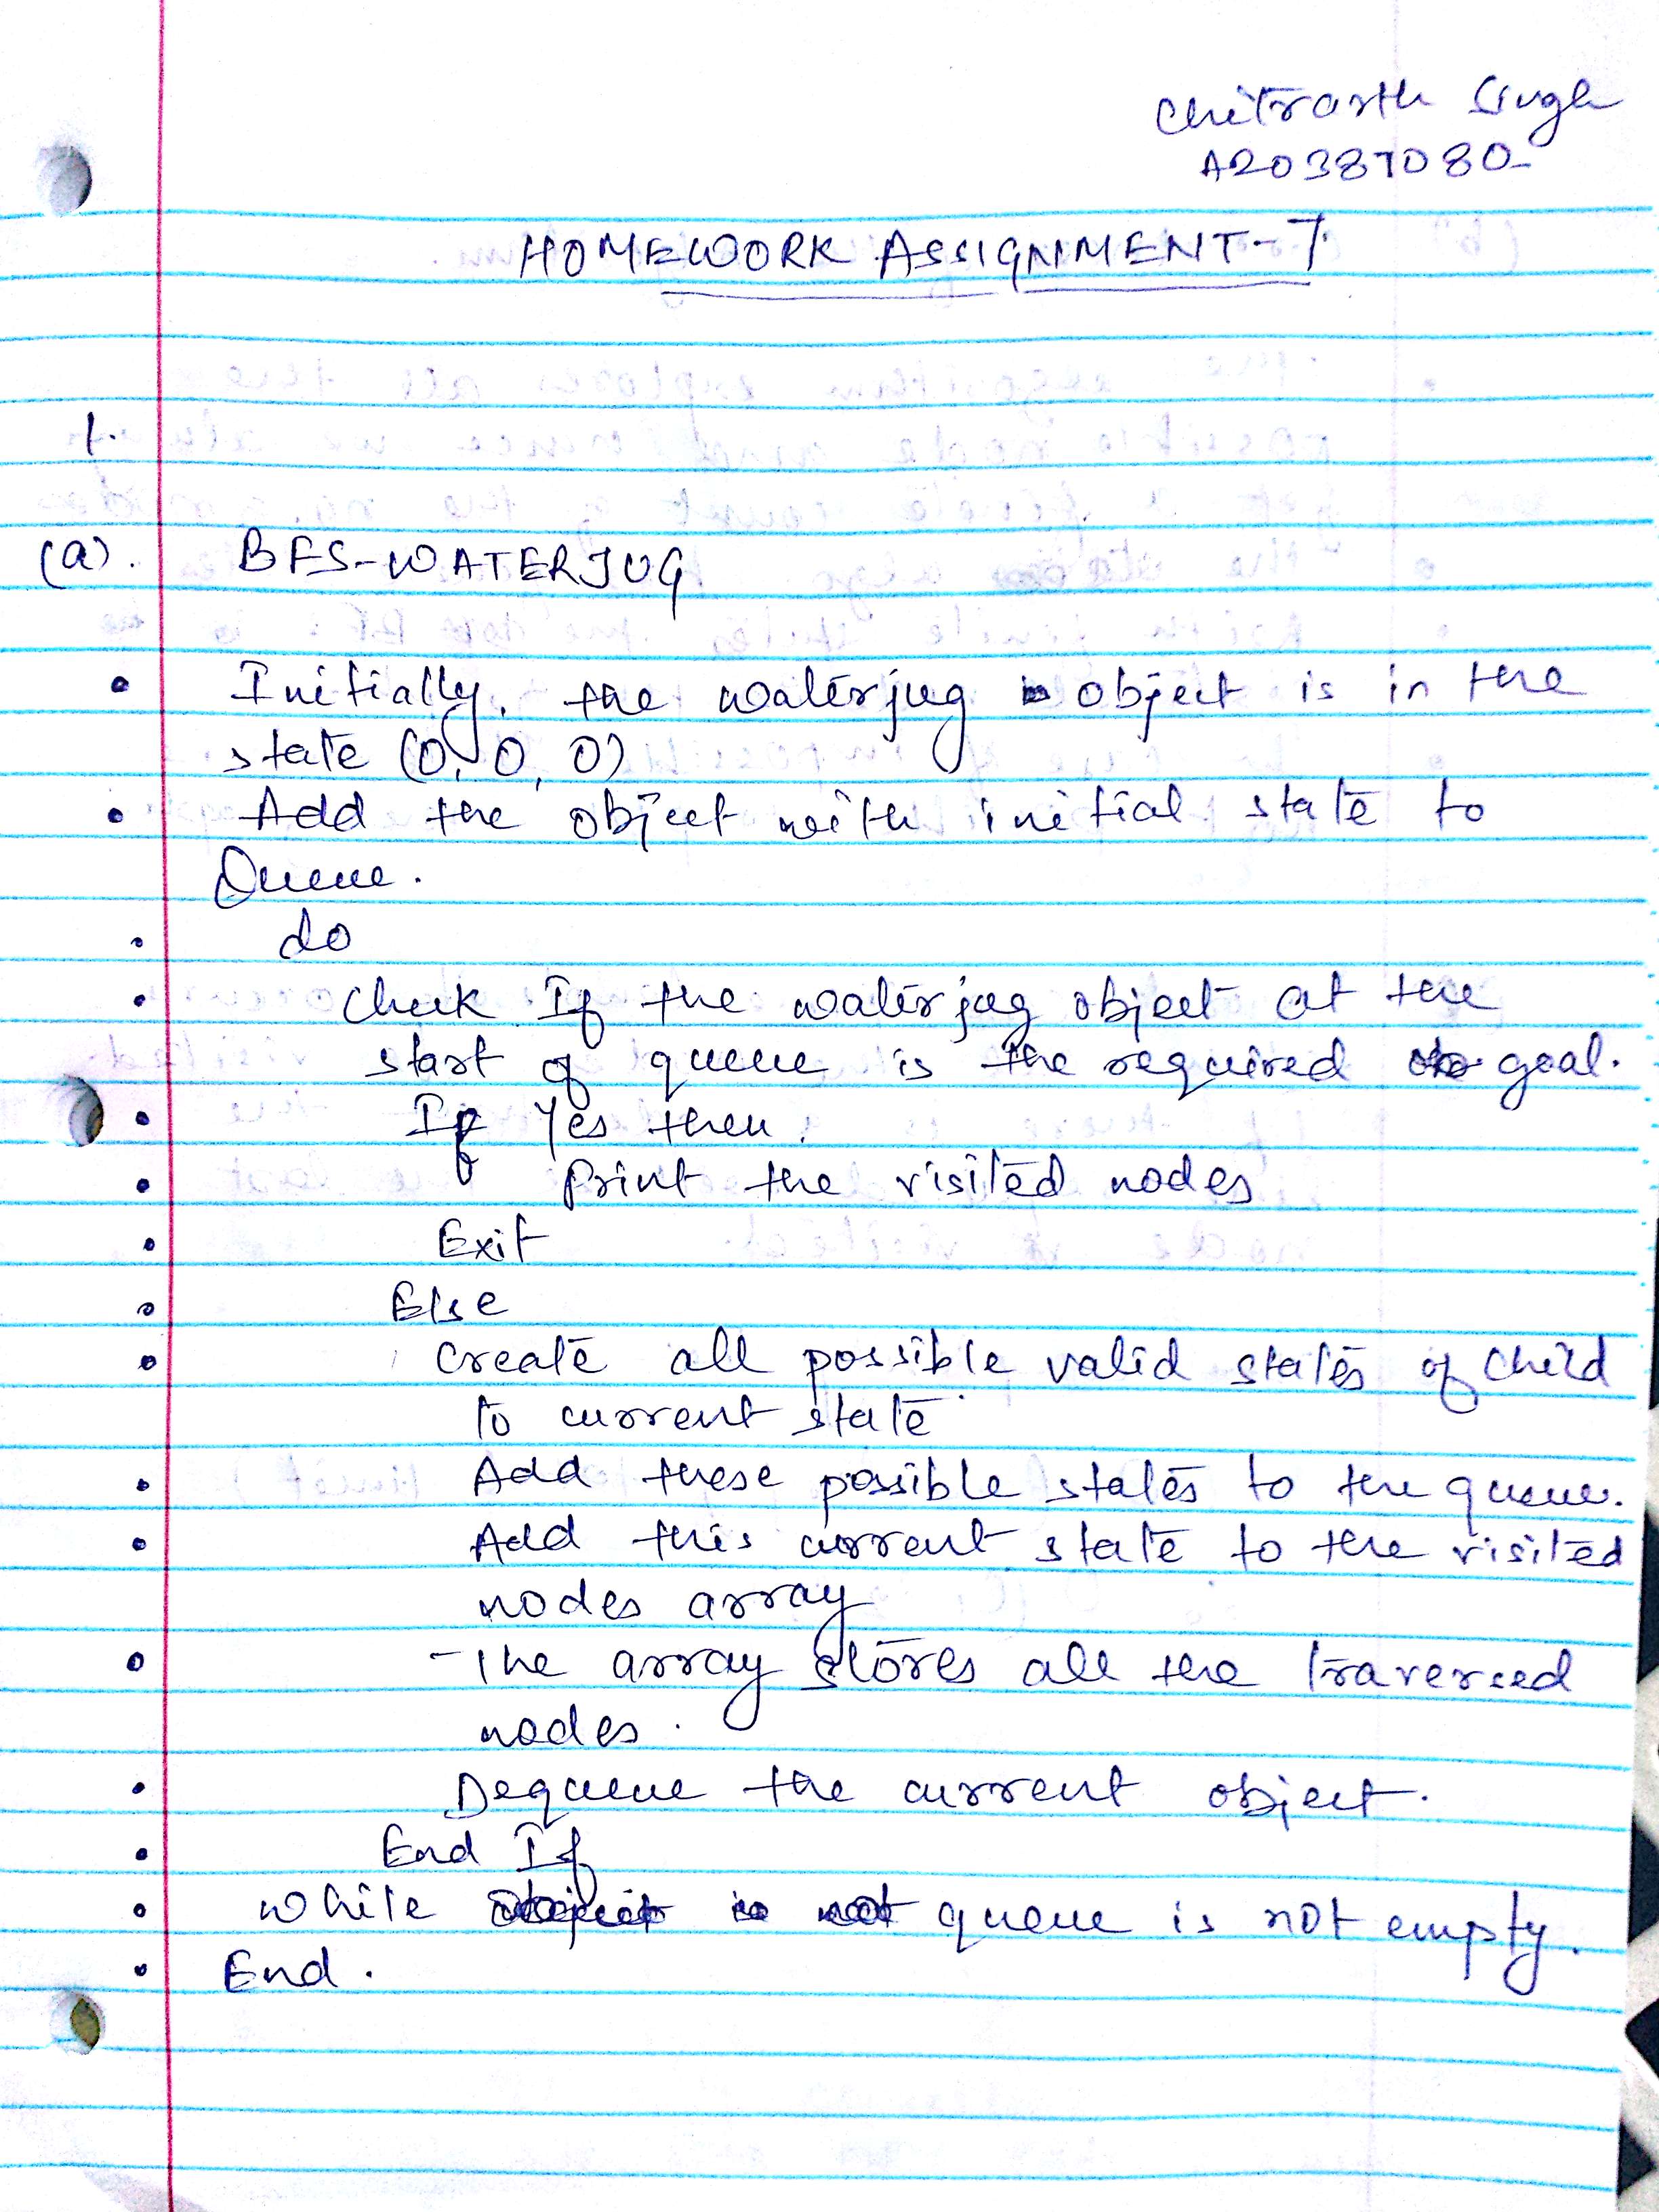 Chitrarth Singh
A20387080
HOMEWORK ASSIGNMENT-7.
1.
(a). BFS-WATERJUG
• Initially, the waterjug object is in the
state (0, 0, 0)
• Add the object with initial state to
Queue.
• do
• Check If the waterjug object at the
start of queue is the required goal.
• If Yes then.
• Print the visited nodes
• Exit
• Else
• Create all possible valid states of child
to current state
• Add these possible states to the queue.
• Add this current state to the visited
nodes array
• - The array stores all the traversed
nodes.
• Dequeue the current object.
• End If
• while queue is not empty.
• End.